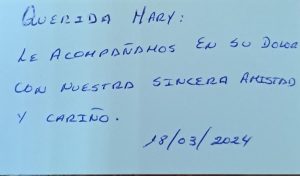 QUERIDA MARY:
LE ACOMPAÑAMOS EN SU DOLOR
CON NUESTRA SINCERA AMISTAD
Y CARIÑO.
18/03/2024